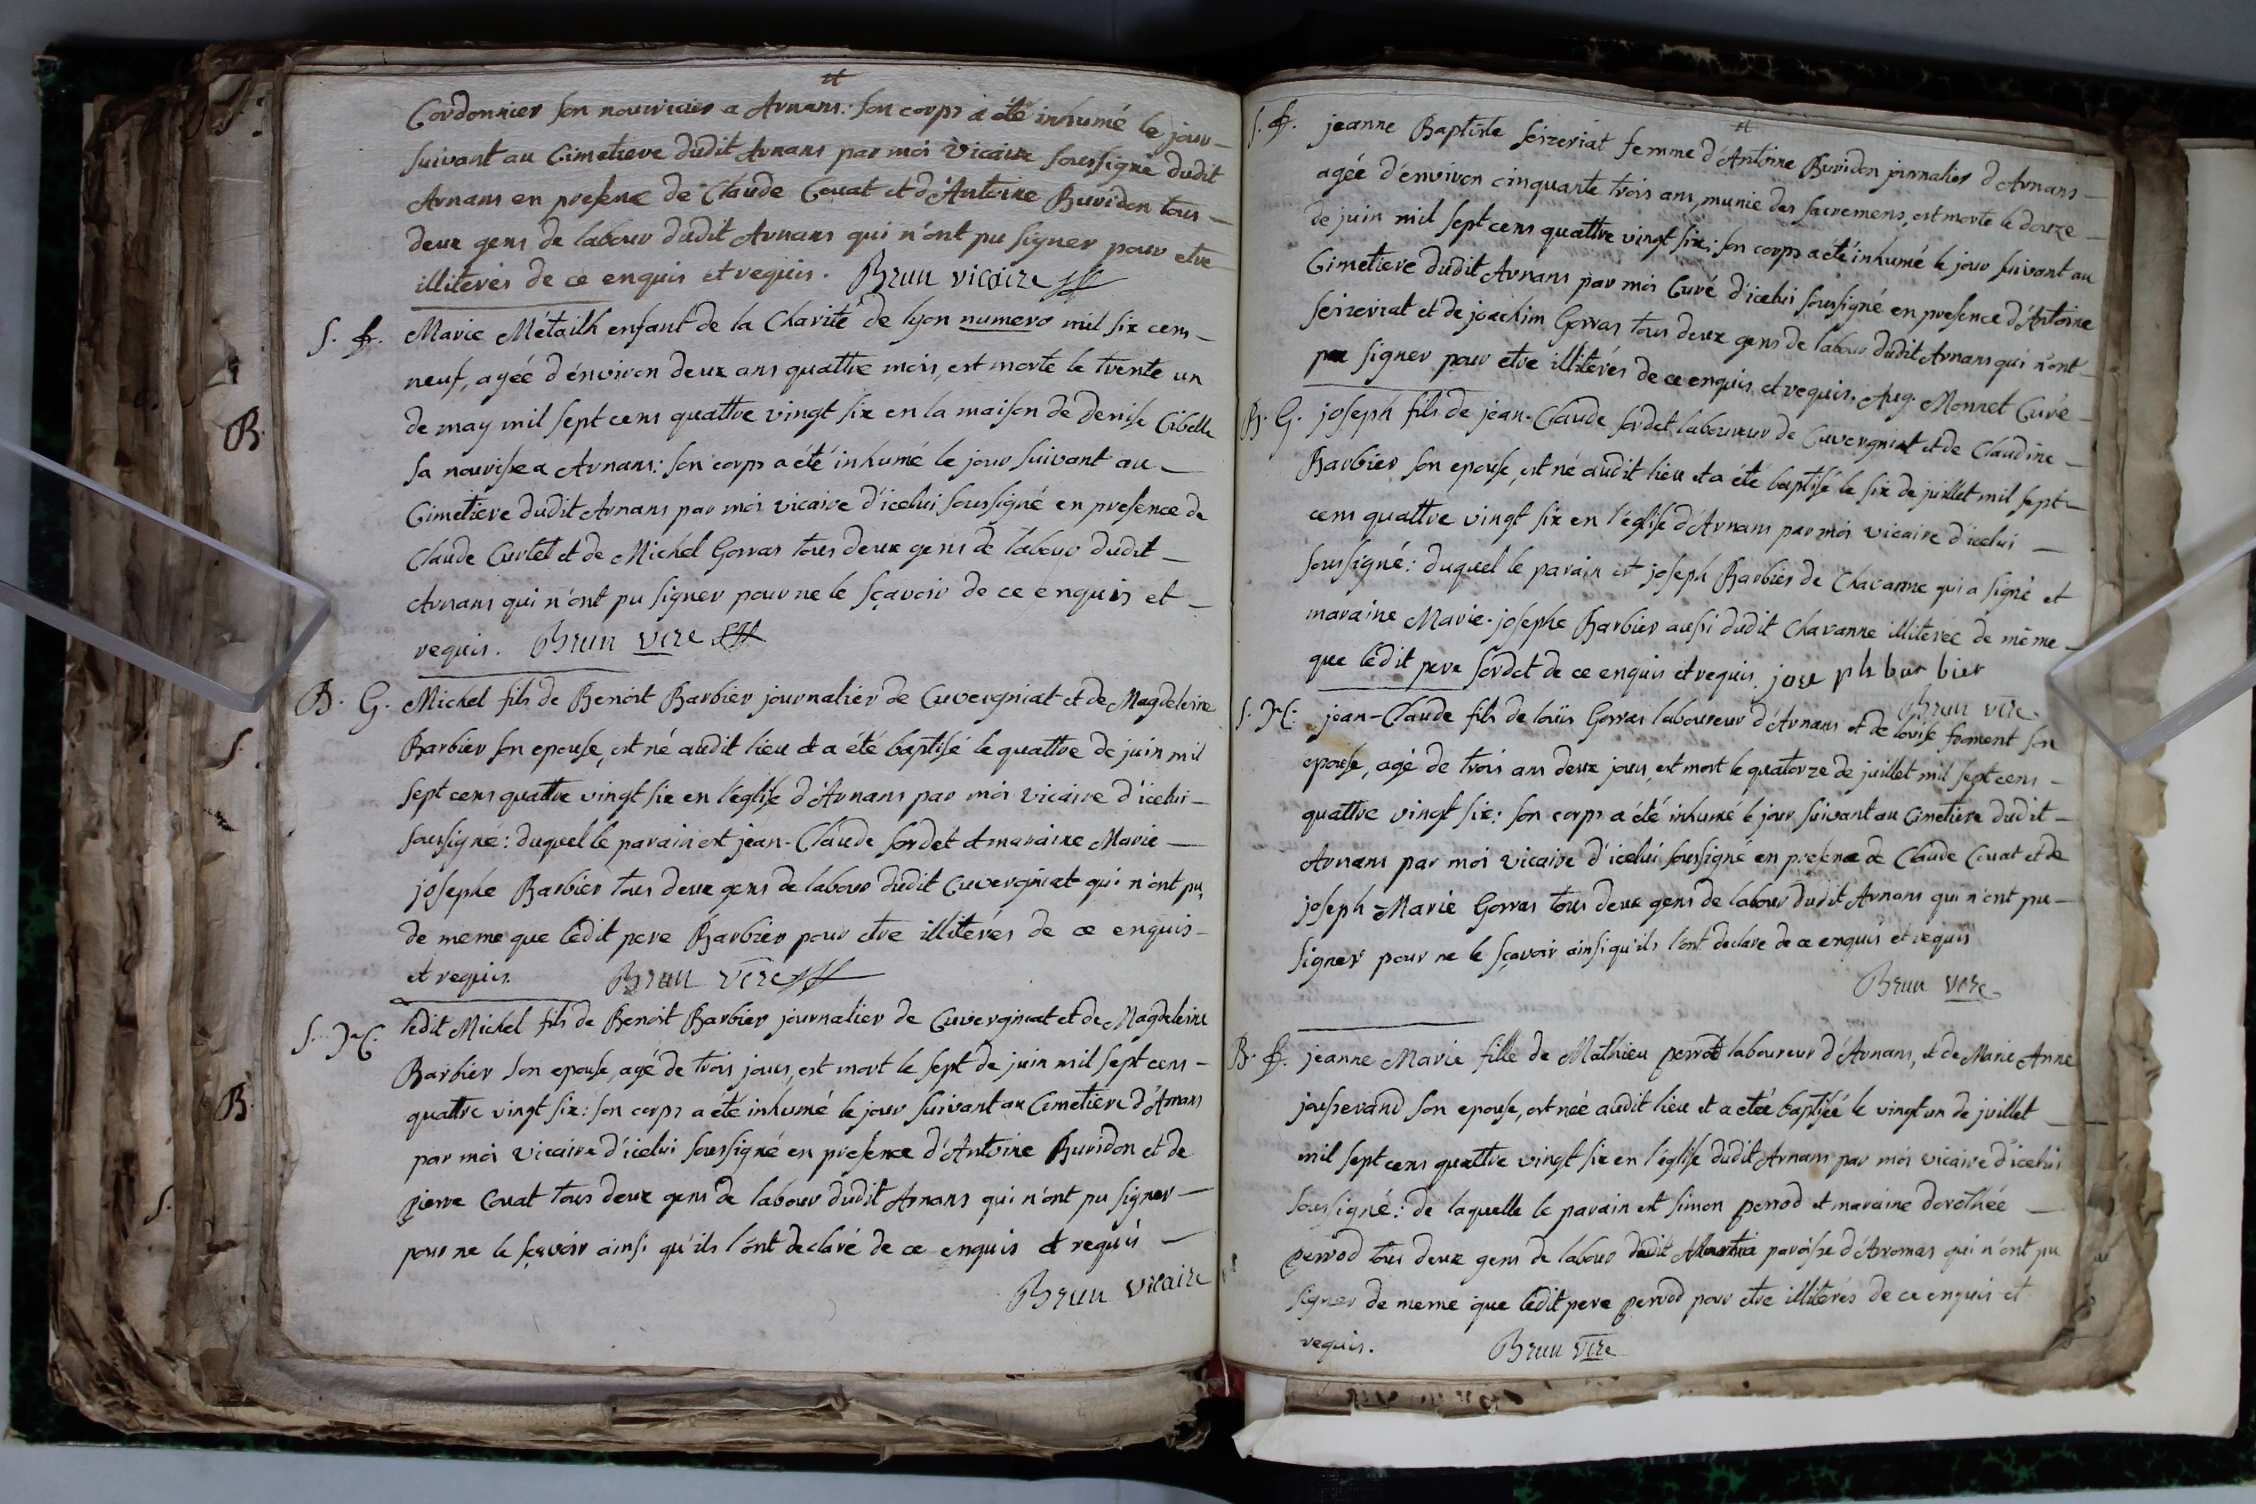 Cordonnier son nourricier a Arnans: son corps a été inhumé le jour
suivant au Cimetiere dudit Arnans par moi vicaire soussigné dudit
Arnans en presence de Claude Couat et d'Antoine Buridon tous
deux gens de labour dudit Arnans qui n'ont pu signer pour etre
illiterés de ce enquis et requis. Brun vicaire
S. f. Marie Métailh enfant de la Charité de lyon numero mil six cens
neuf, agée d'énviron deux ans quattre mois, est morte le trente un
de may mil sept cens quattre vingt six en la maison de denise Cibelle
sa nourisse a Arnans: son corps a été inhumé le jour suivant au
Cimetiere dudit Arnans par moi vicaire d'icelui soussigné en presence de
Claude Curlet et de Michel Gorras tous deux gens de labour dudit
Arnans qui n'ont pu signer pour ne le sçavoir de ce enquis et
requis. Brun vere
B. G. Michel fils de Benoit Barbier journalier de Cuvergniat et de Magdeleine
Barbier son epouse, est né audit lieu et a été baptisé le quattre de juin mil
sept cens quattre vingt six en l'église d'Arnans par moi vicaire d'icelui
soussigné: duquel le parain est jean-Claude Sordet et maraine Marie
josephe Barbier tous deux gens de labour dudit Cuvergniat qui n'ont pu
de meme que ledit pere Barbier pour etre illiterés de ce enquis
et requis. Brun vere
S. ledit Michel fils de Benoit Barbier journalier de Cuvergniat et de Magdeleine
Barbier son epouse, agé de trois jours, est mort le sept de juin mil sept cens
quattre vingt six: son corps a été inhumé le jour suivant au Cimetiere d'Arnans
par moi vicaire d'icelui soussigné en presence d'Antoine Buridon et de
pierre Couat tous deux gens de labour dudit Arnans qui n'ont pu signer
pour ne le sçavoir ainsi qu'ils l'ont declaré de ce enquis et requis
Brun vicaire
B.
S.
B.
S.
S. f. jeanne Baptiste Seizeriat femme d'Antoine Buridon journalier d'Arnans
agée d'énviron cinquante trois ans, munie des sacremens, est morte le douze
de juin mil sept cens quattre vingt six: son corps a été inhumé le jour suivant au
Cimetiere dudit Arnans par moi Curé d'icelui soussigné en presence d'Antoine
Seizeriat et de joachim Gorras tous deux gens de labour dudit Arnans qui n'ont
pu signer pour etre illiterés de ce enquis et requis. Aug. Monnet Curé
B. G. joseph fils de jean-Claude Sordet laboureur de Cuvergniat et de Claudine
Barbier son epouse, est né audit lieu et a été baptisé le six de juillet mil sept
cens quattre vingt six en l'église d'Arnans par moi vicaire d'icelui
soussigné: duquel le parain est joseph Barbier de Chavanne qui a signé et
maraine Marie-josephe Barbier aussi dudit Chavanne illiteree de même
que ledit pere Sordet de ce enquis et requis. jose ph bar bier
Brun vere
S. jean-Claude fils de louis Gorras laboureur d'Arnans et de louise froment son
epouse, agé de trois ans deux jours, est mort le quatorze de juillet mil sept cens
quattre vingt six: son corps a été inhumé le jour suivant au Cimetiere dudit
Arnans par moi vicaire d'icelui soussigné en presence de Claude Couat et de
joseph-Marie Gorras tous deux gens de labour dudit Arnans qui n'ont pu
signer pour ne le sçavoir ainsi qu'ils l'ont declare de ce enquis et requis
Brun vere
B. f. jeanne Marie fille de Mathieu perrod laboureur d'Arnans, et de Marie Anne
jousserand son epouse, est née audit lieu et a eteé baptiséé le vingt un de juillet
mil sept cens quattre vingt six en l'église dudit Arnans par moi vicaire d'icelui
soussigné: de laquelle le parain est simon perrod et maraine dorothée
perrod tous deux gens de labour paroisse d'Aromas qui n'ont pu
signer de meme que ledit pere perrod pour etre illiterés de ce enquis et
requis. Brun vere